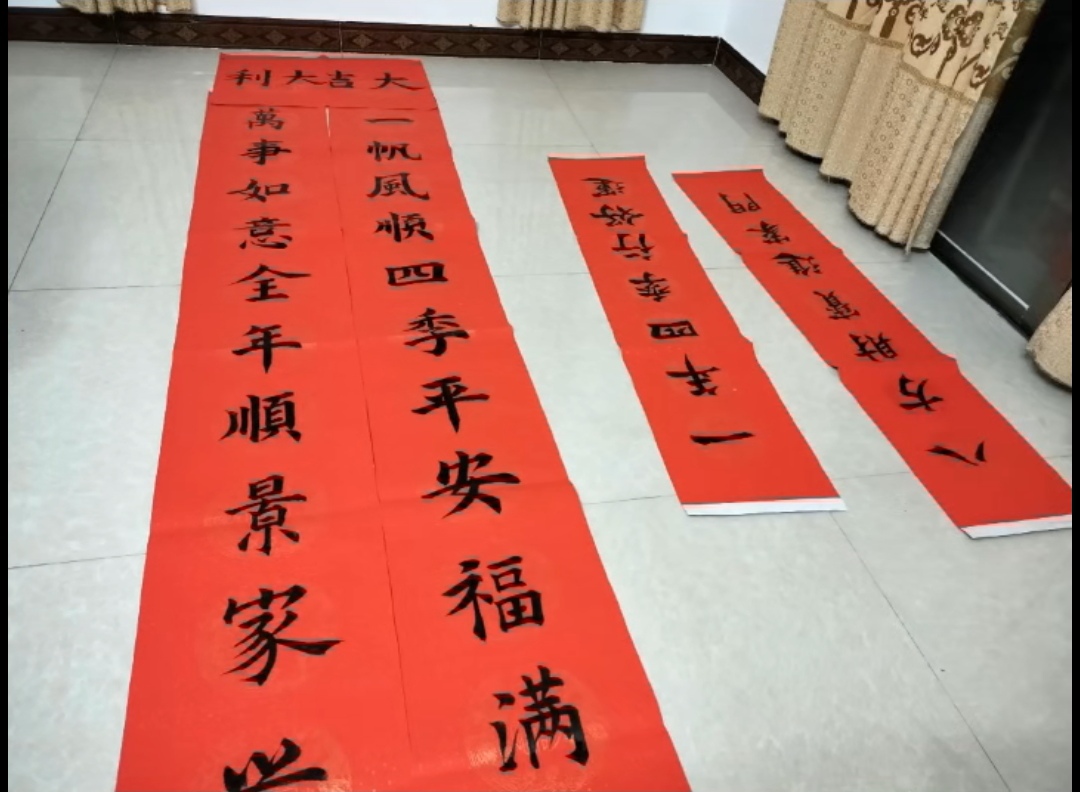 大吉大利
一帆風順四季平安福满
萬事如意全年順景家
一年四季行好運
八方財寶進家門